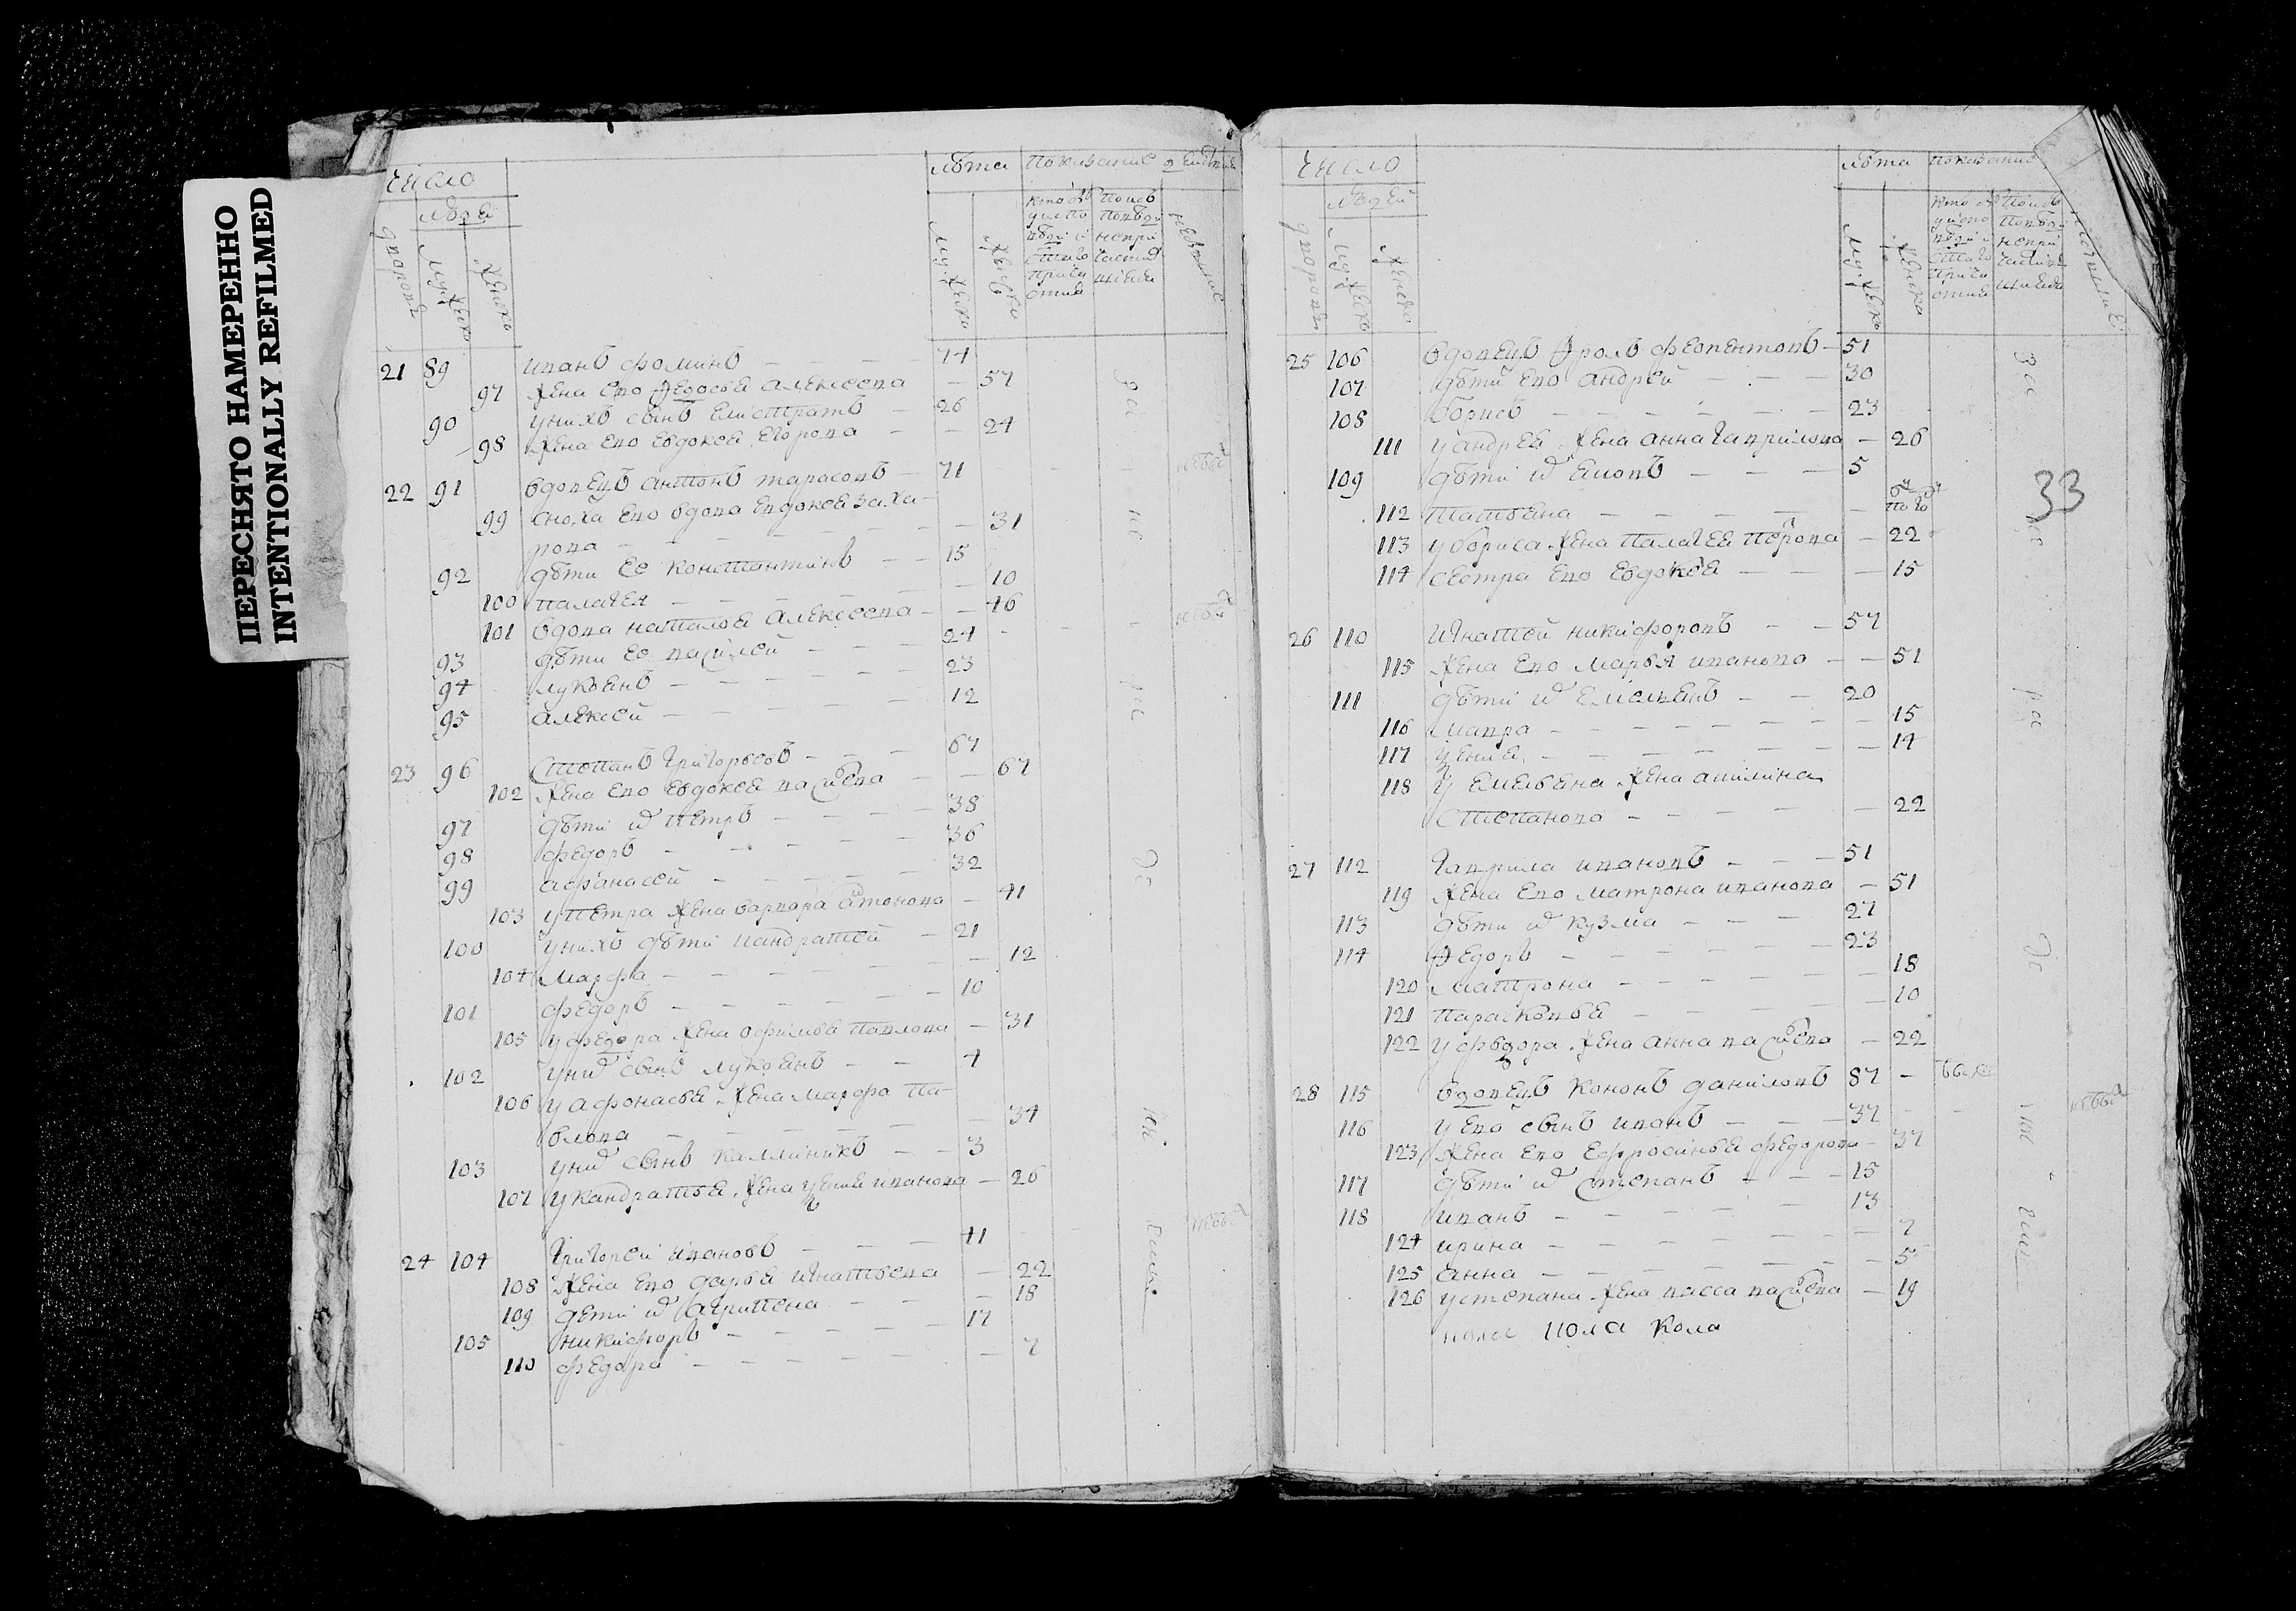 ПЕРЕСНЯТО НАМЕРЕННО
INTENTIONALLY REFILMED
число
людей
дворовъ
мужеско
женско
лѣта
мужеско
женско
показание
21 89 иванъ фоминъ — 74
97 жена ево федосья алексеева — 57
90 у нихъ сынъ елистратъ — 26
98 жена ево евдокея егорова — 24
22 91 вдовецъ антонъ тарасовъ — 71 небы
99 сноха ево вдова евдокея заха
рова — 31
92 дѣти ее константинъ — 15
100 палагея — 10
101 вдова наталья алексеева — 46 небы
93 дѣти ее василей — 24
94 лукьянъ — 23
95 алексей — 12
23 96 степанъ григорьевъ — 67
102 жена ево евдокея васильева — 67
97 дѣти их петръ — 38
98 федоръ — 36
99 афанасей — 32
103 у петра жена варвара антонова — 41
100 у нихъ дѣти кандратей — 21
104 марфа — 12
101 федоръ — 10
105 у федора жена офимья павлова — 31
102 у них сынъ лукьянъ — 4
106 у афонасья жена марфа па
влова — 34
103 у них сынъ каллиникъ — 3
107 у кандратья жена ксенья иванова — 26
24 104 григорей ивановъ — 41 небы
108 жена ево дарья игнатьева — 22
109 дѣти их агрипена — 18
105 никифоръ — 17
110 федора — 7
число
людей
дворовъ
мужеско
женско
лѣта
мужеско
женско
показание
33
25 106 вдовецъ фролъ феопентовъ — 51
107 дѣти ево андрей — 30
108 борисъ — 23
111 у андрея жена анна гаврилова — 26
109 дѣти их — 5
112 татьяна — полго
113 у бориса жена палагея петрова — 22
114 сестра ево евдокея — 15
26 110 игнатей никифоровъ — 57
115 жена ево марья иванова — 51
111 дѣти их емельянъ — 20
116 мавра — 15
117 ксенья — 14
118 у емельяна жена акилина
степанова — 22
27 112 гаврила ивановъ — 51
119 жена ево матрона иванова — 51
113 дѣти их кузма — 27
114 федоръ — 23
120 матрона — 18
121 парасковья — 10
122 у федора жена анна васильева — 22
28 115 вдовецъ кононъ даниловъ 87 —
116 у ево сынъ иванъ — 37 небы
123 жена ево ефросинья федорова — 37
117 дѣти их степанъ — 15
118 иванъ — 13
124 ирина — 7
125 анна — 5
126 у степана жена васса васильева — 19